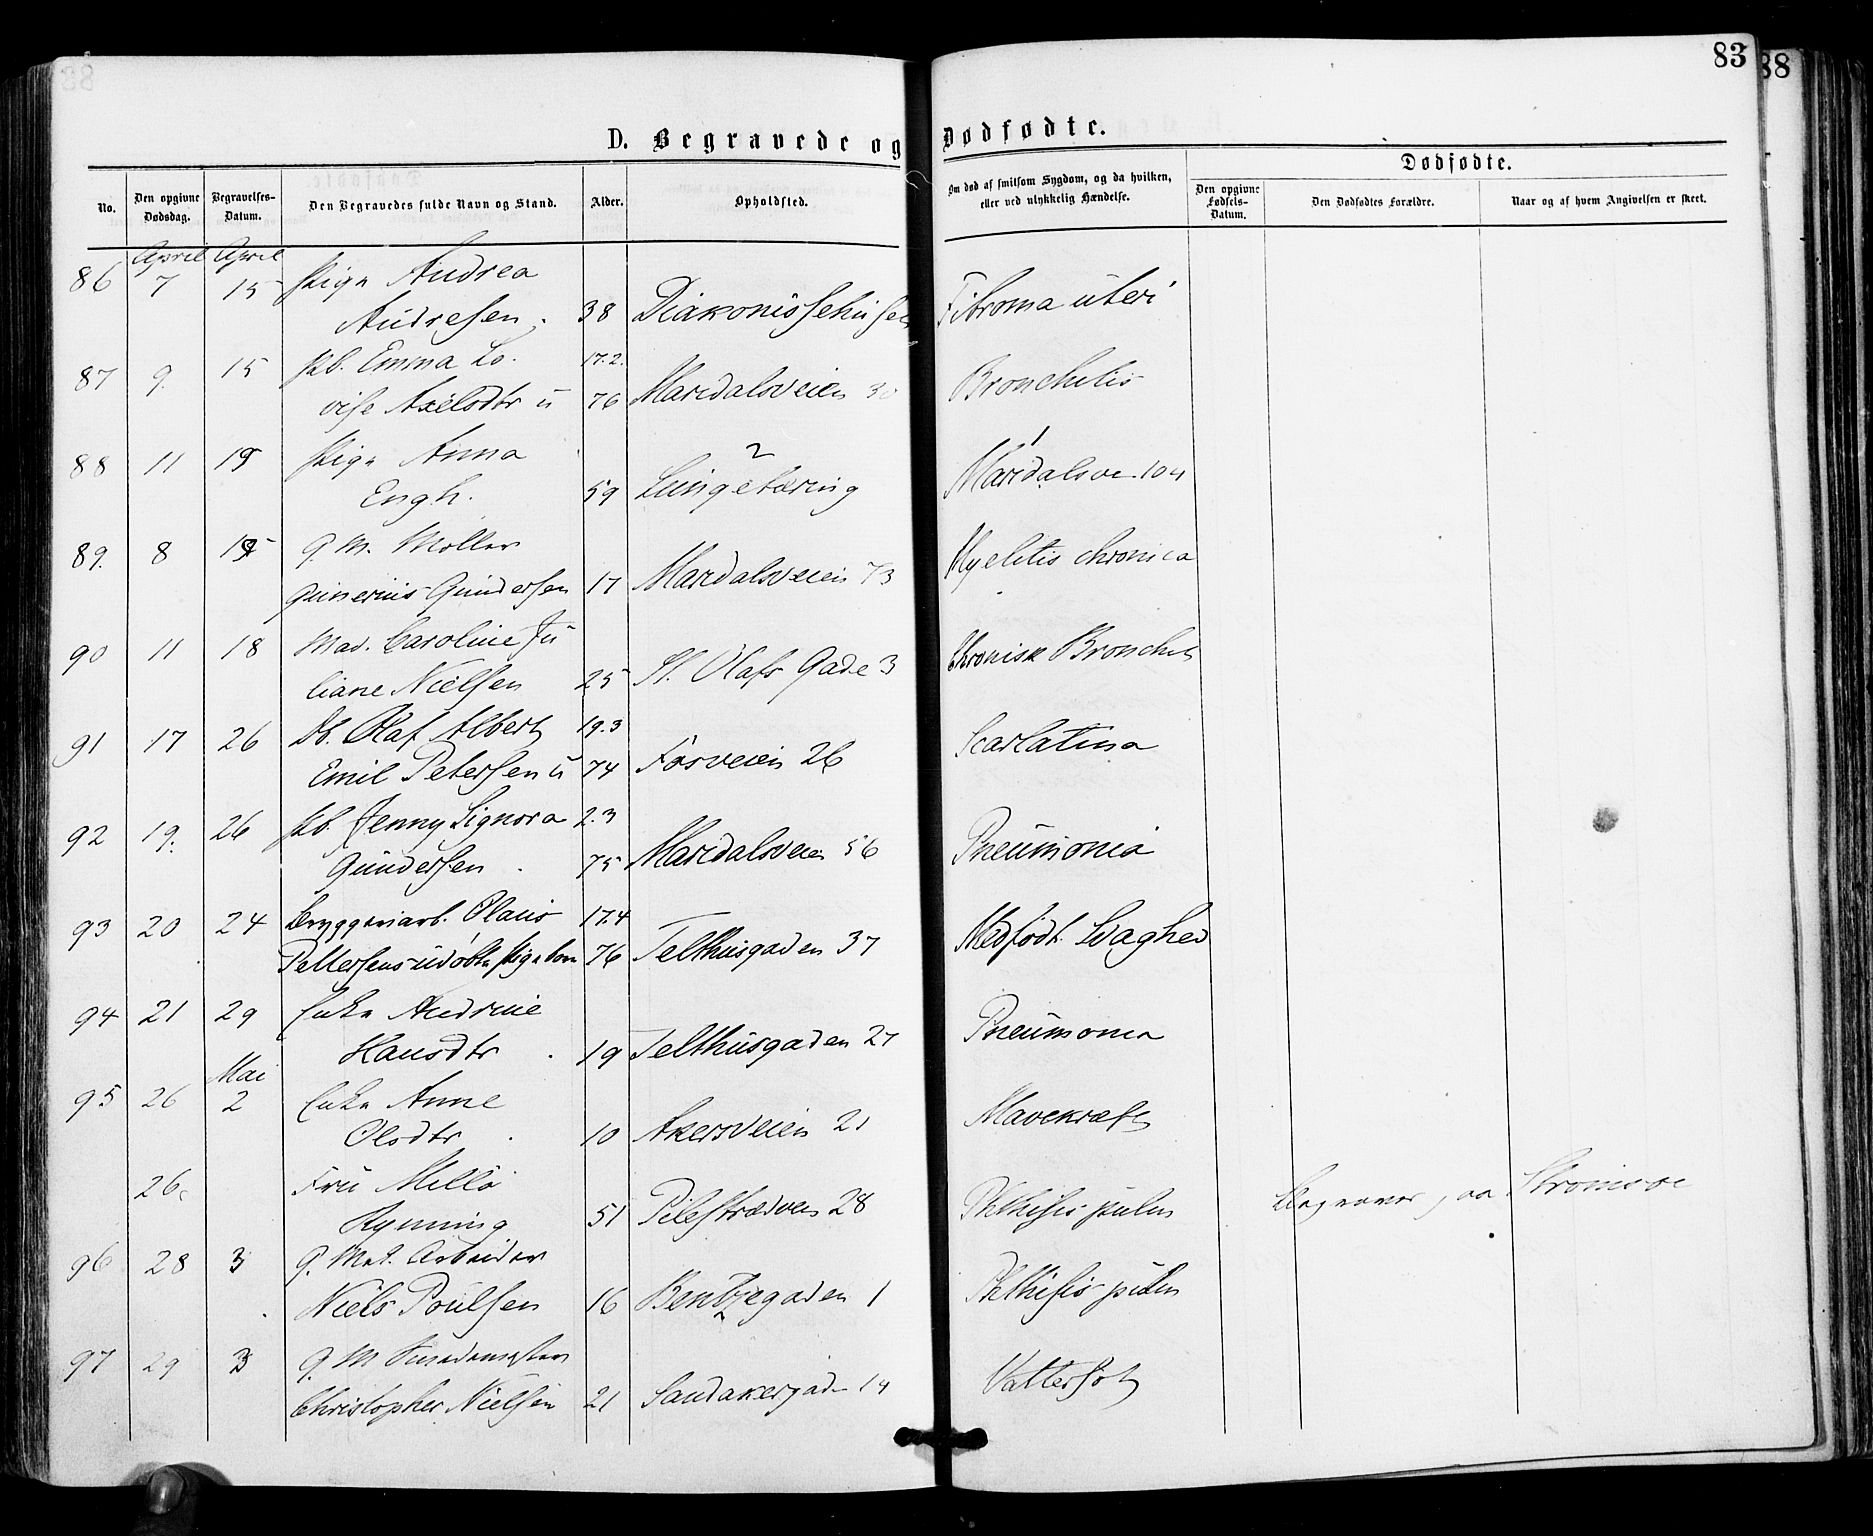 83
88
D. Begravede og Dødfødte.
No.
Den opgivne Dødsdag.
Begravelses-Datum.
Den Begravedes fulde Navn og Stand.
Alder.
Opholdsted.
Om død af smitsom Sygdom, og da hvilken, eller ved ulykkelig Hændelse.
Dødfødte.
Den opgivne Fødsels-Datum.
Den Dødfødtes Forældre.
Naar og af hvem Angivelsen er skeet.
April April
86 7 15 Pige Andrea
Andresen. 38 Diakonissehusen Fibroma uteri
87 9. 15 Pb. Emma Lo. 17.2.
vise Axelsdtr u 76 Maridalsveien 30 Bronchitis
88 11 19 Pige Anna 2 1
Engh. 59 Lungetæring Maridalsve. 104
89. 8 G. M. Møller
Gunerius Gundersen 17 Maridalsveien 73 Myelitis chronica
90 11 18 Mad. Caroline Ju
liane Nielsen 25 St. Olafs Gade 3 Chronisk Bronchit
91 17 26 Db. Olaf Albert 19.3
Emil Petersen u 74 Fosveien 26 Scarlatina
92 19. 26 Pb. Jenny Signora 2.3
Gundersen. 75 Maridalsveien 56 Pneumonia
93 20 24 Bryggeriarb. Olaus 17.4
Pettersens udøbte Pigebarn 76 Telthusgaden 37 Medfødt Svaghed
94 21 29 Enke Andrine
Hansdtr. 19 Telthusgaden 27 Pneumonia
Mai
95 26 2 Enke Anne
Olsdtr. 10 Akersveien 21 Mavekræft
26. Fru Milla
Kynning 51 Pilestrædven 28 Phthisis pulm Begraves paa Strømsøe
96 28 3 G. Mat. Arbeider
Niels Poulsen 16 Bentzegaden 1 Phthisis pulm
97 29 3 G. M
Christopher Nielsen 21 Sandakergaden 14 Vattersot